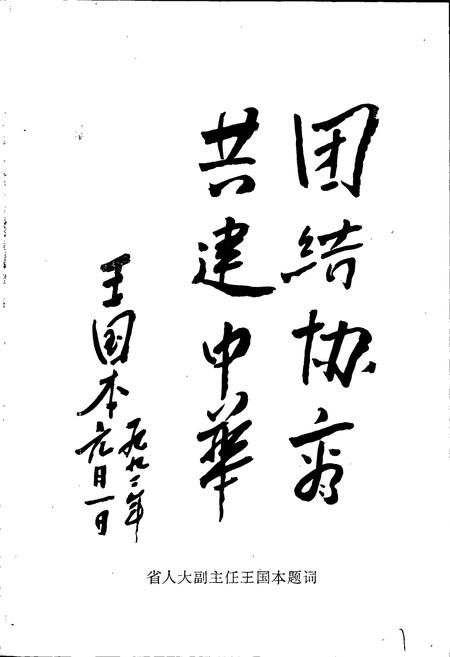 团结协商
共建中华
王国本
一九九二年
元月一日
省人大副主任王国本题词